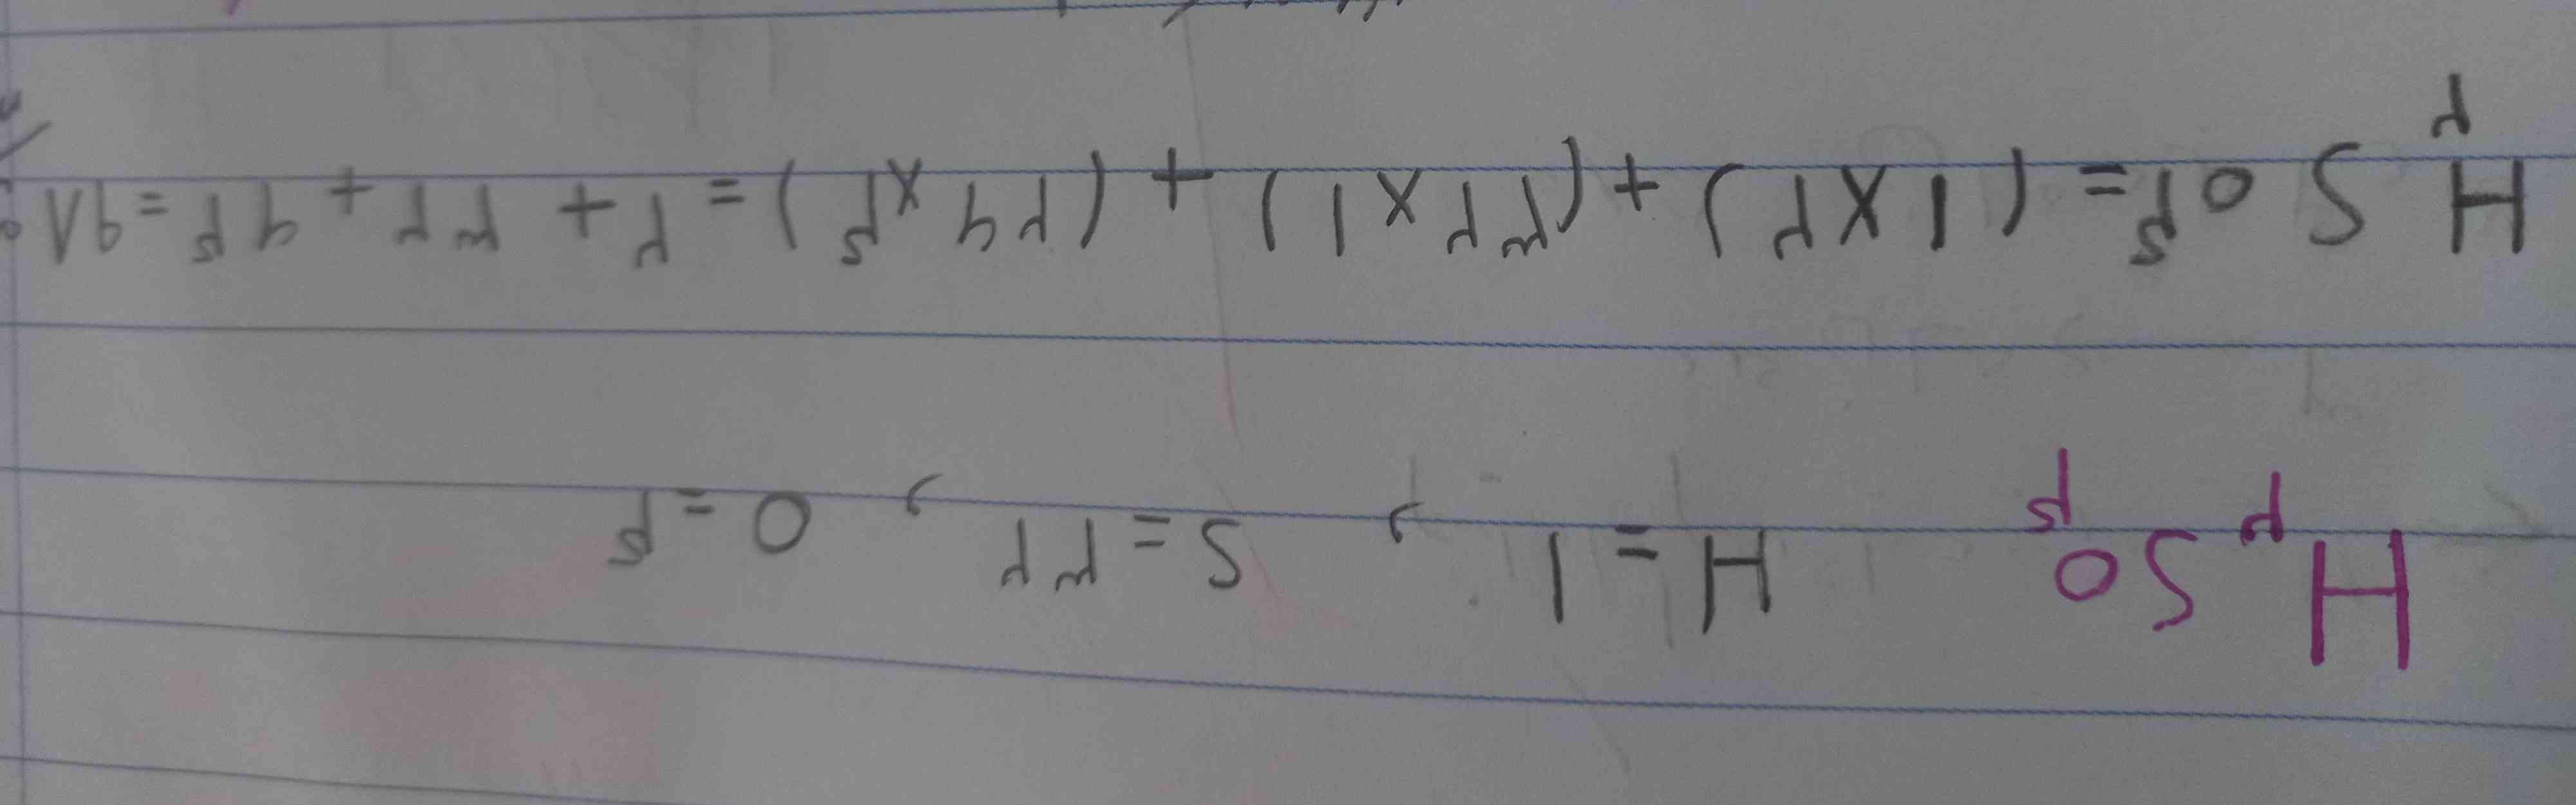 H۲SO۴ H=۱ , S=۳۲ , O=۴
H۲SO۴=(۱×۲)+(۳۲×۱)+(۲۶×۴)=۲+۳۲+۶۴=۹۸